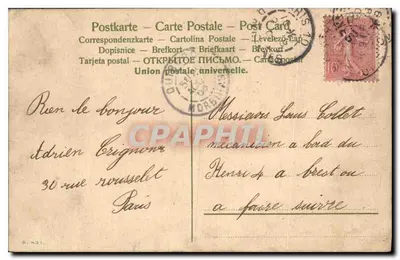 Postkarte - Carte Postale - Post Card
Correspondenzkarte - Cartolina Postale - Levelezö-Lap
Dopisnice - Brefkort - Briefkaart - Brevkort
Tarjeta postal - ОТКРЫТОЕ ПИСЬМО. - Carte postal
Union postale universelle.
MORBIHAN
10
PRPhoto
Rien le bonjour
Adrien Crignour
30 rue rousselet
Paris
Messieurs Louis Collet
mécanicien a bord du
Henri 4 a brest ou
a faire suivre